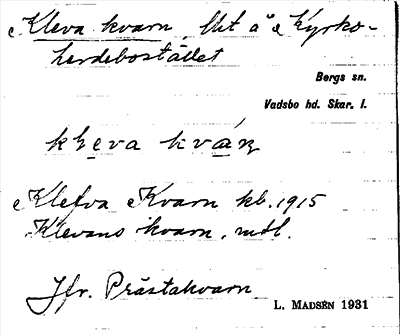 Kleva kvarn, lht å Kyrko-
herdebostället
Bergs sn.
Vadsbo hd. Skar. l.
kleva kvàɳ
Klefva Kvarn kb. 1915
Klevans kvarn, mtl.
Jfr. Prästakvarn
L. MADSÉN 1931